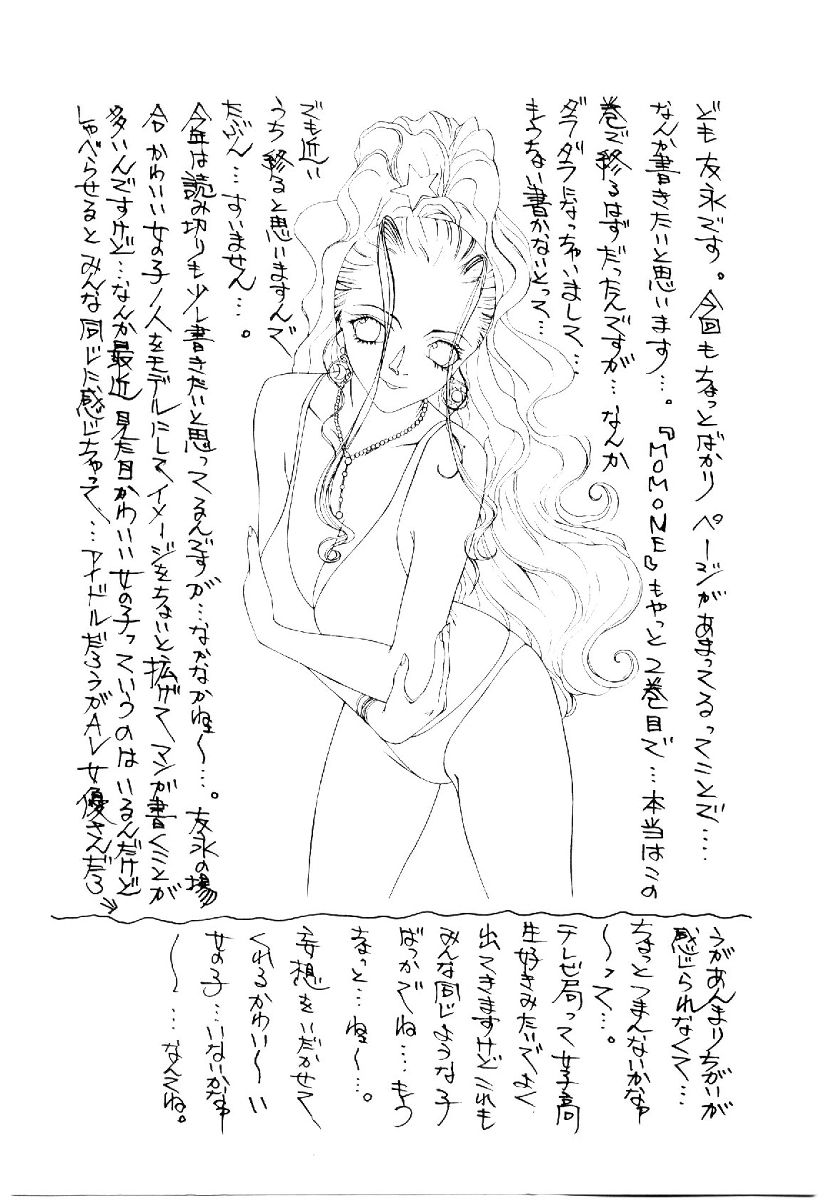 ども友永です。今回もちょっとばかりページがあまってるってことで....
なんか書きたいと思います...。『MOMONE』もやっと2巻目で...本当はこの
巻で終るはずだったんですが...なんか
ダラダラになっちゃいまして...
もうちょい書かないとって...
でも近い
うち終ると思いますんで
たぶん...すいません...。
今年は読み切りも少し書きたいと思ってるんですが...なかなかね〜...。友永の場
合かわいい女の子1人をモデルにしてイメージをちょいと拡げてマンガ書くことが
多いんですけど...なんか最近見た目かわいい女の子っていうのはいるんだけど
しゃべらせるとみんな同じに感じちゃって...アイドルだろうがAV女優さんだろ
うがあんまりちがいが
感じられなくて...
ちょっとつまんないかなゅ
〜って...。
テレビ局って女子高
生好きみたいでよく
出てきますけどこれも
みんな同じような子
ばっかでね...もう
ちょっと...ね〜...。
妄想をいだかせて
くれるかわい〜い
女の子...いないかなゅ
〜...なんてね。